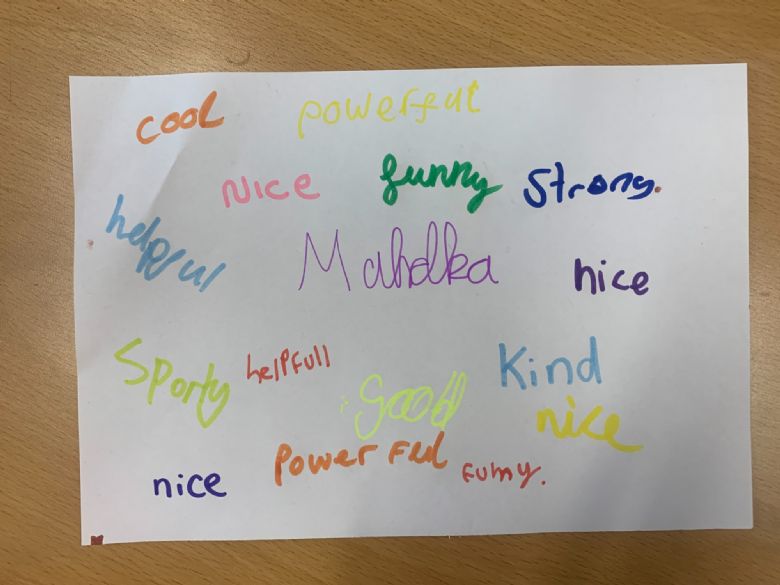 cool powerful
Nice funny Strong.
helpful
nice
Sporty helpfull Kind
good nice
Power Ful
nice Fumy.